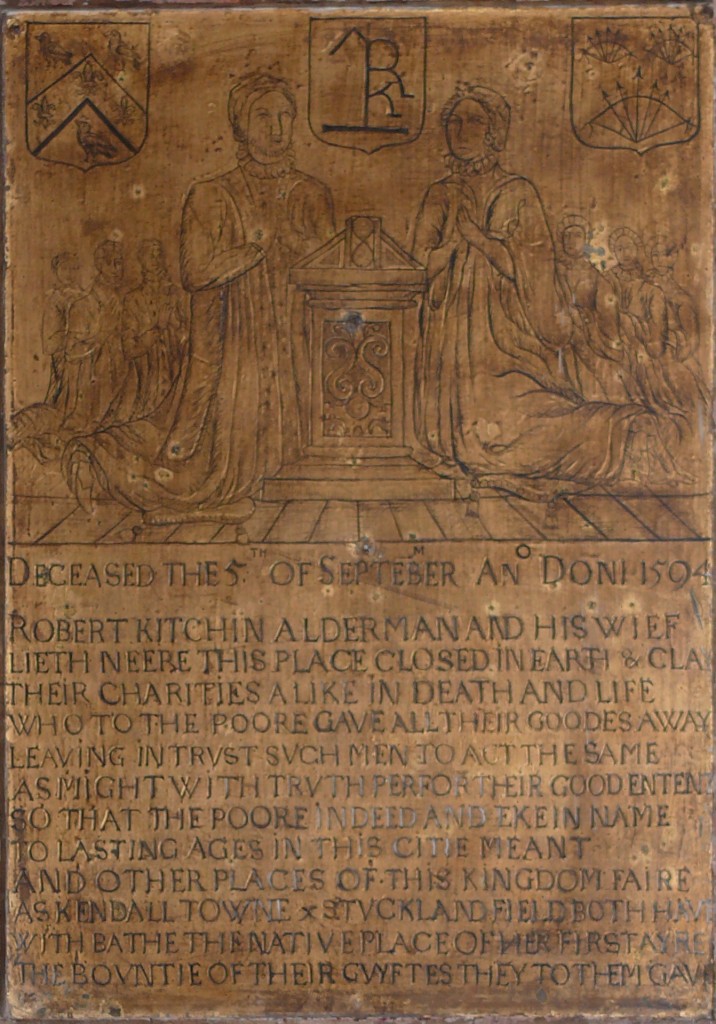 DECEASED THE 5TH OF SEPTEMBER ANO DONI 1594
ROBERT KITCHIN ALDERMAN AND HIS WIEF
LIETH NEERE THIS PLACE CLOSED IN EARTH & CLAY
THEIR CHARITIES ALIKE IN DEATH AND LIFE
WHO TO THE POORE GAVE ALL THEIR GOODES AWAY
LEAVING IN TRVST SVCH MEN TO ACT THE SAME
AS MIGHT WITH TRVTH PERFOR THEIR GOOD ENTENT
SO THAT THE POORE INDEED AND EKE IN NAME
TO LASTING AGES IN THIS CITIE MEANT
AND OTHER PLACES OF THIS KINGDOM FAIRE
AS KENDALL TOWNE STVCKLAND FIELD BOTH HAVE
WITH BATHE THE NATIVE PLACE OF HER FIRST AYRE
THE BOVNTIE OF THEIR GVYFTES THEY TO THEM GAVE